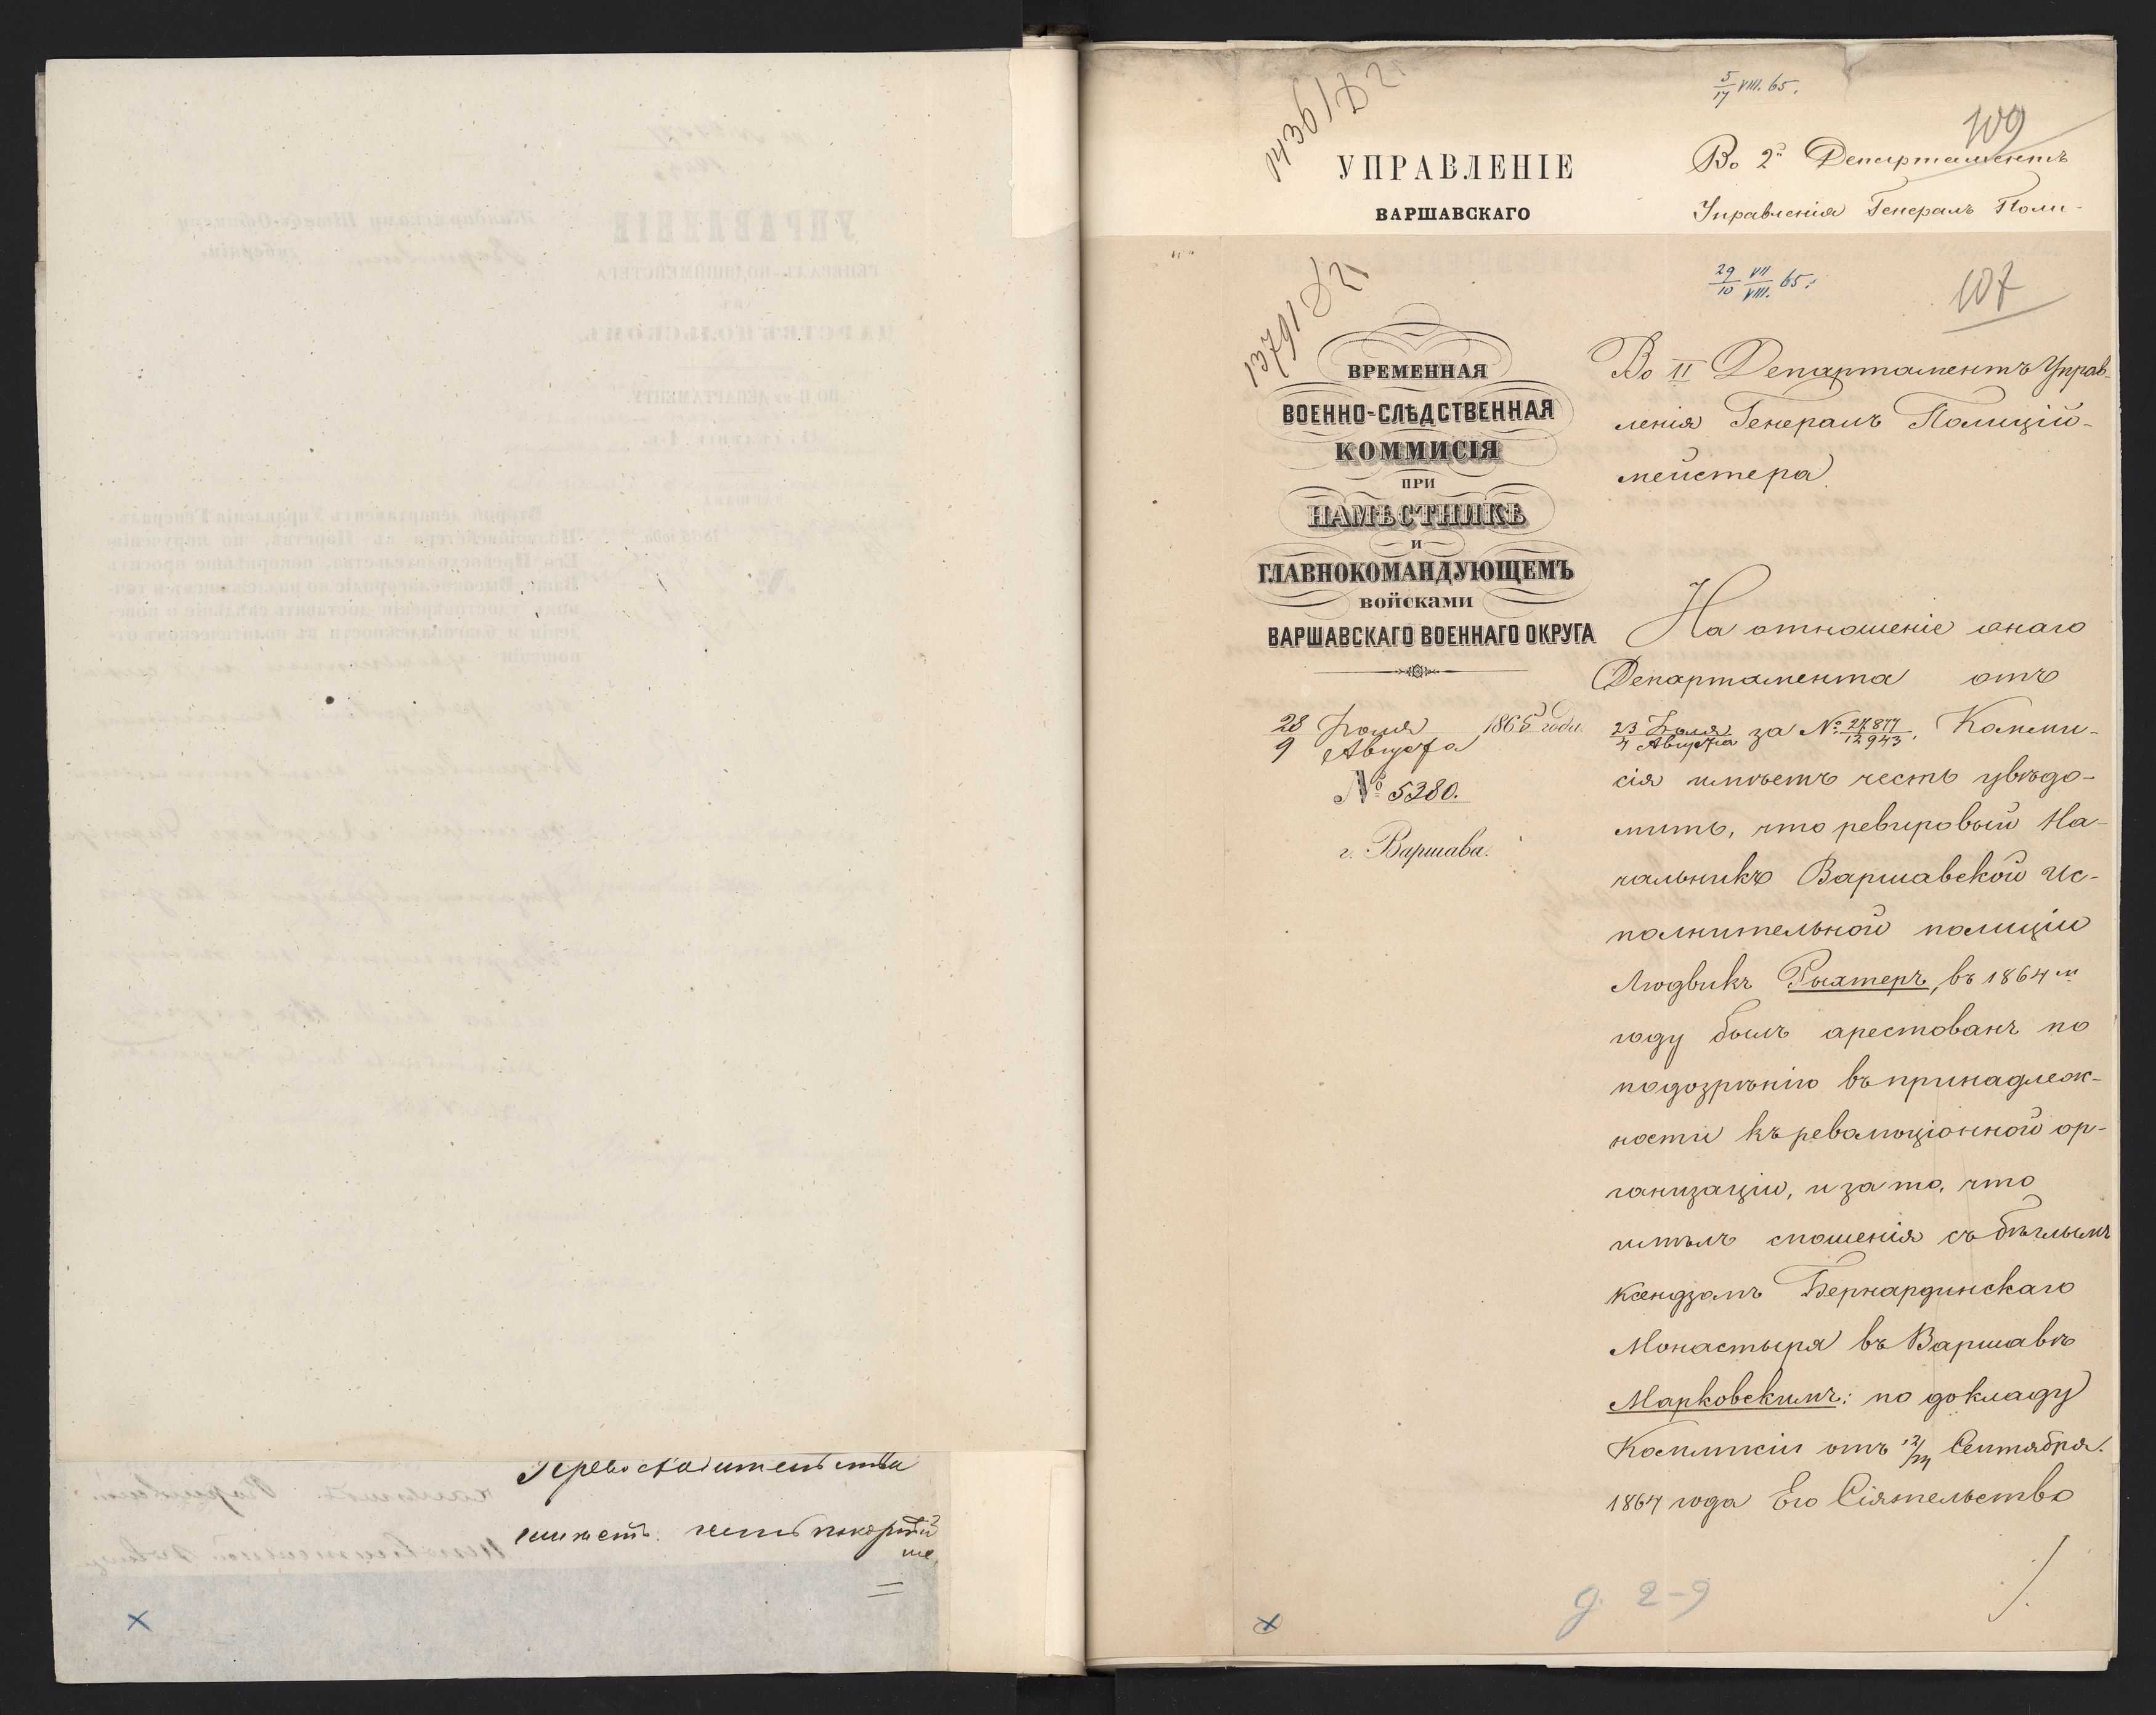 Превосходительства
имѣетъ честь покорнѣй
ше
5/17 VIII. 65.
14361 Д 2
109
УПРАВЛЕНІЕ
ВАРШАВСКАГО
Во 2й Департаментъ
Управленія Генералъ Поли-
29/10 VII/VIII. 65.
13791 Д 2
107
ВРЕМЕННАЯ
ВОЕННО-СЛѢДСТВЕННАЯ
КОММИСІЯ
ПРИ
НАМѢСТНИКѢ
И
ГЛАВНОКОМАНДУЮЩЕМЪ
ВОЙСКАМИ
ВАРШАВСКАГО ВОЕННАГО ОКРУГА
28 Іюля 1865 года.
9 Августа
№ 5280.
г. Варшава.
Во II Департаментъ Управ-
ленія Генералъ Полицій-
мейстера.
На отношеніе онаго
Департамента отъ
23 Іюля/4 Августа за № 27877/12943, Комми-
сія имѣетъ честь увѣдо-
мить, что ревировый На-
чальникъ Варшавской Ис-
полнительной полиціи
Людвикъ Рыхтеръ, въ 1864 м
году былъ арестованъ по
подозрѣнію въ принадлеж-
ности къ революціонной ор-
ганизаціи, и за то, что
имѣлъ сношенія съ бѣглымъ
ксендзомъ Бернардинскаго
Монастыря въ Варшавѣ
Марковскимъ: по докладу
Коммисіи отъ 12/24 Сентября.
1864 года Его Сіятельство
./.
д. 2-9